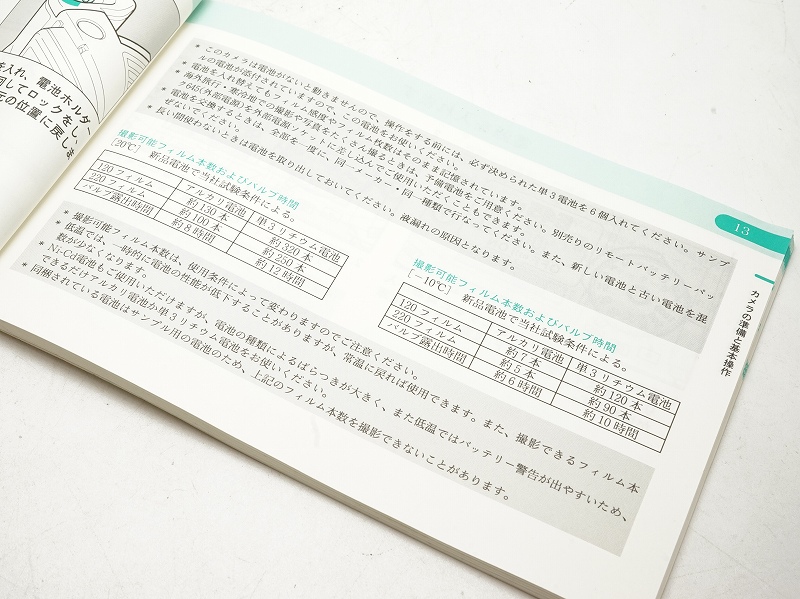 を入れ、電池ホルダ
回してロックをし、
元の位置に戻しま
＊このカメラは電池がないと動きませんので、操作をする前には、必ず決められた単3電池を6個入れてください。サンプ
ルの電池が添付されていますので、この電池をお使いください。
＊電池を入れ替えてもフィルム感度やフィルム枚数はそのまま記憶されています。
＊海外旅行・寒冷地での撮影や写真をたくさん撮るときは、予備電池をご用意ください。別売りのリモートバッテリーパッ
ク645(外部電源)を外部電源ソケットに差し込んでご使用いただくこともできます。
＊電池を交換するときは、全部を一度に、同一メーカー・同一種類で行なってください。また、新しい電池と古い電池を混
ぜないでください。
＊長い間使わないときは電池を取り出しておいてください。液漏れの原因となります。
撮影可能フィルム本数およびバルブ時間
[20℃] 新品電池で当社試験条件による。
アルカリ電池 単3リチウム電池
120フィルム 約130本 約320本
220フィルム 約100本 約250本
バルブ露出時間 約8時間 約12時間
撮影可能フィルム本数およびバルブ時間
[−10℃] 新品電池で当社試験条件による。
アルカリ電池 単3リチウム電池
120フィルム 約7本 約120本
220フィルム 約5本 約90本
バルブ露出時間 約6時間 約10時間
＊撮影可能フィルム本数は、使用条件によって変わりますのでご注意ください。
＊低温では、一時的に電池の性能が低下することがありますが、常温に戻れば使用できます。また、撮影できるフィルム本
数が少なくなります。
＊Ni-Cd電池もご使用いただけますが、電池の種類によるばらつきが大きく、また低温ではバッテリー警告が出やすいため、
できるだけアルカリ電池か単3リチウム電池をお使いください。
＊同梱されている電池はサンプル用の電池のため、上記のフィルム本数を撮影できないことがあります。
13
カメラの準備と基本操作